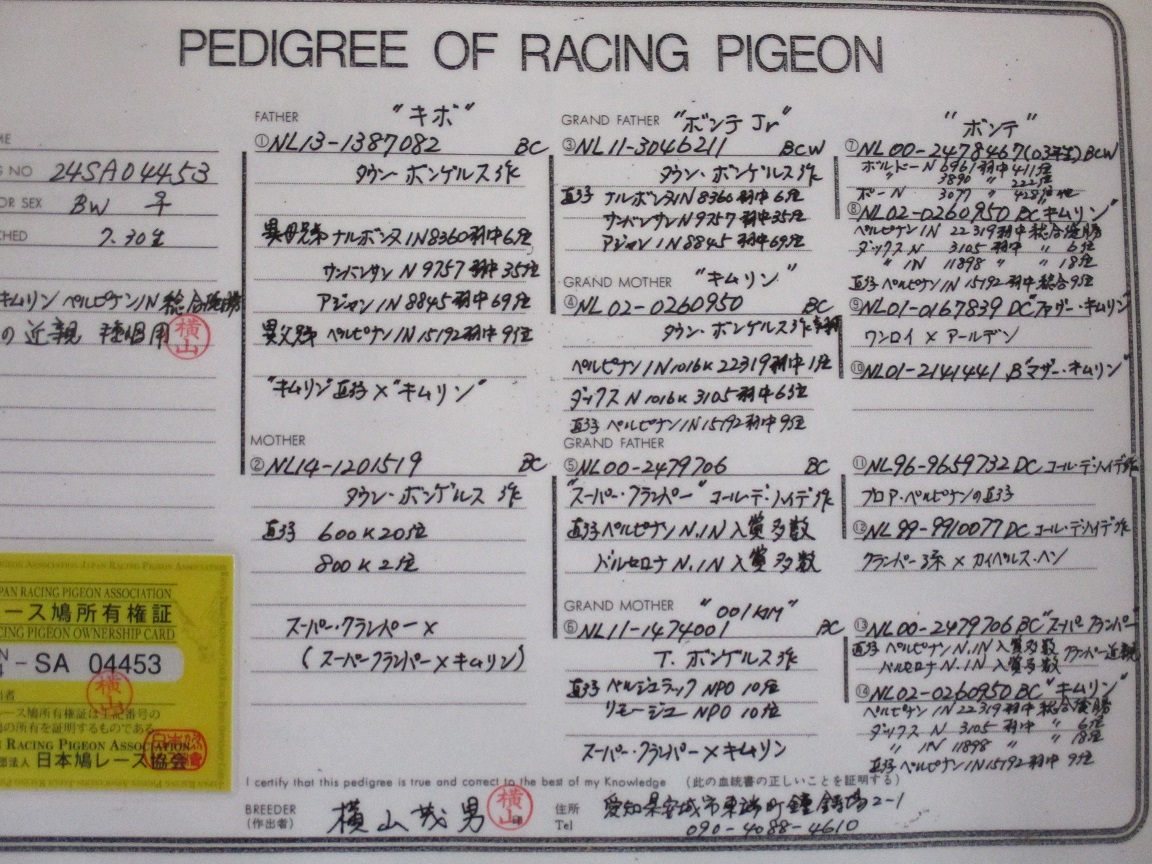 PEDIGREE OF RACING PIGEON
ME
G NO 24SA04453
OR SEX BW ♀
CHED 7.30生
キムリン ペルピナンIN 総合優勝
の近親 種鳩用
横山
FATHER "キボ"
①NL13-1387082 BC
タウン・ボンゲルス作
異母兄弟 ナルボンヌIN 8360羽中6位
サンバンサン N 9757羽中35位
アジャン IN 8845羽中69位
異父兄弟 ペルピナン IN 15192羽中9位
"キムリン"直子×"キムリン"
MOTHER
②NL14-1201519 BC
タウン・ボンゲルス作
直子 600K20位
800K 2位
スーパー・クランパー×
(スーパークランパー×キムリン)
GRAND FATHER "ボンテJr"
③NL11-3046211 BCW
タウン・ボンゲルス作
直子 ナルボンヌIN 8360羽中6位
サンバンサン N 9757羽中35位
アジャン IN 8845羽中69位
GRAND MOTHER "キムリン"
④NL02-0260950 BC
タウン・ボンゲルス作
ペルピナン IN1016K 22319羽中1位
ダックス N 1016K 3105羽中6位
直子 ペルピナン IN 15192羽中9位
GRAND FATHER
⑤NL00-2479706 BC
"スーパー・クランパー" コール・デ・ハイデ作
直子ペルピナン N.IN 入賞多数
バルセロナ N.IN 入賞多数
GRAND MOTHER "001KIM"
⑥NL11-1474001 BC
T. ボンゲルス作
直子 ベルジュラック NPO 10位
リモージュ NPO 10位
スーパー・クランパー×キムリン
"ボンテ"
⑦NL00-2478467(03年生)BCW
ボルドー N 6961羽中411位
〃 3890 〃 222位
ポー N 3077 〃 428位他
⑧NL02-0260950 BC"キムリン"
ペルピナン IN 22319羽中総合優勝
ダックス N 3105羽中 〃 6位
〃 IN 11898 〃 〃 18位
直子 ペルピナン IN 15192羽中 総合9位
⑨NL01-0167839 DC"ファザー・キムリン"
ワンロイ×アールデン
⑩NL01-2141441 B"マザー・キムリン"
⑪NL96-9659732 DC コール・デ・ハイデ作
プロア・ペルピナンの直子
⑫NL99-9910077 DC コール・デ・ハイデ作
クランパー系×カイペルス・ヘン
⑬NL00-2479706 BC"スーパークランパー"
直子 ペルピナン N.IN 入賞多数
バルセロナ N.IN 入賞多数 クランパー近親
⑭NL02-0260950 BC"キムリン"
ペルピナン IN 22319羽中 総合優勝
ダックス N 3105羽中 〃 6位
〃 IN 11898 〃 〃 18位
直子ペルピナンIN15192羽中 9位
PAN RACING PIGEON ASSOCIATION
ース鳩所有権証
CING PIGEON OWNERSHIP CARD
- SA 04453
横山
ース鳩所有権証は上記番号の
鳩の所有を証明するものである
N RACING PIGEON ASSOCIATION
団法人 日本鳩レース協会
I certify that this pedigree is true and correct to the best of my Knowledge (此の血統書の正しいことを証明する)
BREEDER
(作出者) 横山 茂男 横山印
住所 愛知県安城市東端町鐘鋳場2-1
Tel 090-4088-4610